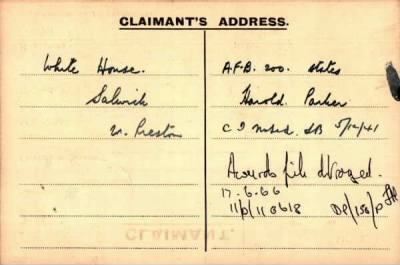 CLAIMANT'S ADDRESS.
White House.
Salwick
nr. Preston
A.F.B. 200. states
Harold Parker
C I noted. SB 5/12/41
Awards file destroyed.
17.6.66
11/P/110618
CLAIMANT.